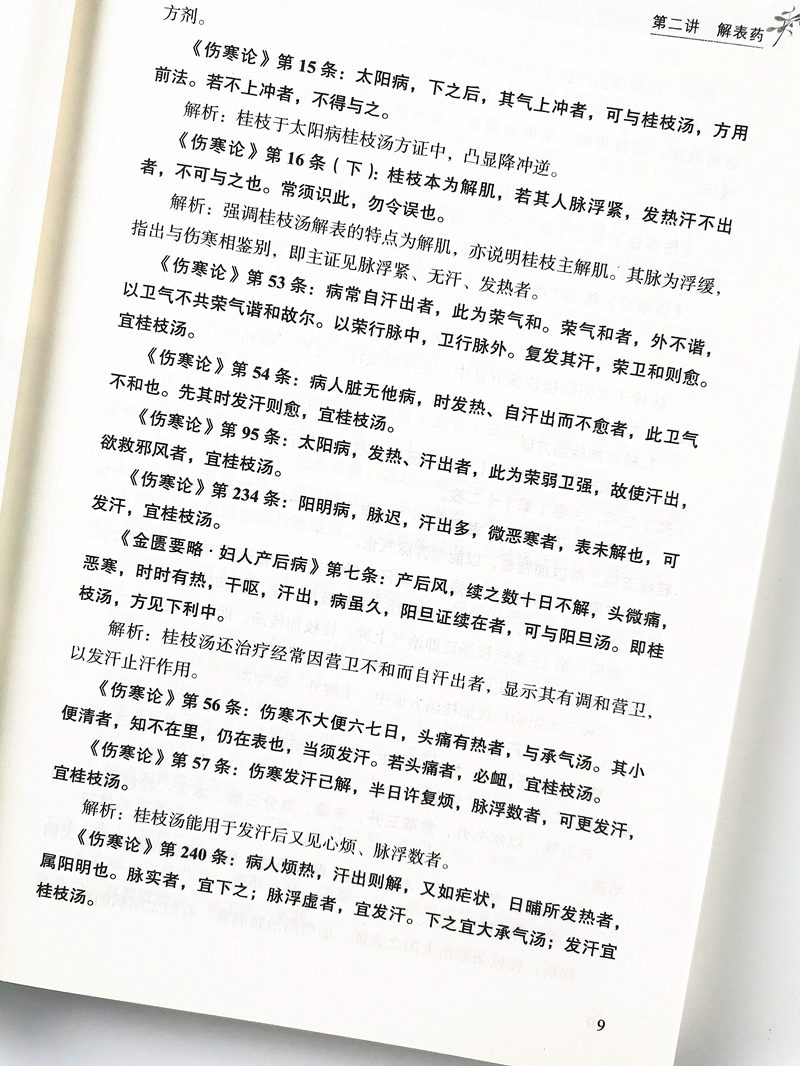 第二讲 解表药
方剂。
《伤寒论》第15条：太阳病，下之后，其气上冲者，可与桂枝汤，方用
前法。若不上冲者，不得与之。
解析：桂枝于太阳病桂枝汤方证中，凸显降冲逆。
《伤寒论》第16条（下）：桂枝本为解肌，若其人脉浮紧，发热汗不出
者，不可与之也。常须识此，勿令误也。
解析：强调桂枝汤解表的特点为解肌，亦说明桂枝主解肌。其脉为浮缓，
指出与伤寒相鉴别，即主证见脉浮紧、无汗、发热者。
《伤寒论》第53条：病常自汗出者，此为荣气和。荣气和者，外不谐，
以卫气不共荣气谐和故尔。以荣行脉中，卫行脉外。复发其汗，荣卫和则愈。
宜桂枝汤。
《伤寒论》第54条：病人脏无他病，时发热、自汗出而不愈者，此卫气
不和也。先其时发汗则愈，宜桂枝汤。
《伤寒论》第95条：太阳病，发热、汗出者，此为荣弱卫强，故使汗出，
欲救邪风者，宜桂枝汤。
《伤寒论》第234条：阳明病，脉迟，汗出多，微恶寒者，表未解也，可
发汗，宜桂枝汤。
《金匮要略·妇人产后病》第七条：产后风，续之数十日不解，头微痛，
恶寒，时时有热，干呕，汗出，病虽久，阳旦证续在者，可与阳旦汤。即桂
枝汤，方见下利中。
解析：桂枝汤还治疗经常因营卫不和而自汗出者，显示其有调和营卫，
以发汗止汗作用。
《伤寒论》第56条：伤寒不大便六七日，头痛有热者，与承气汤。其小
便清者，知不在里，仍在表也，当须发汗。若头痛者，必衄，宜桂枝汤。
《伤寒论》第57条：伤寒发汗已解，半日许复烦，脉浮数者，可更发汗，
宜桂枝汤。
解析：桂枝汤能用于发汗后又见心烦、脉浮数者。
《伤寒论》第240条：病人烦热，汗出则解，又如疟状，日晡所发热者，
属阳明也。脉实者，宜下之；脉浮虚者，宜发汗。下之宜大承气汤；发汗宜
桂枝汤。
9